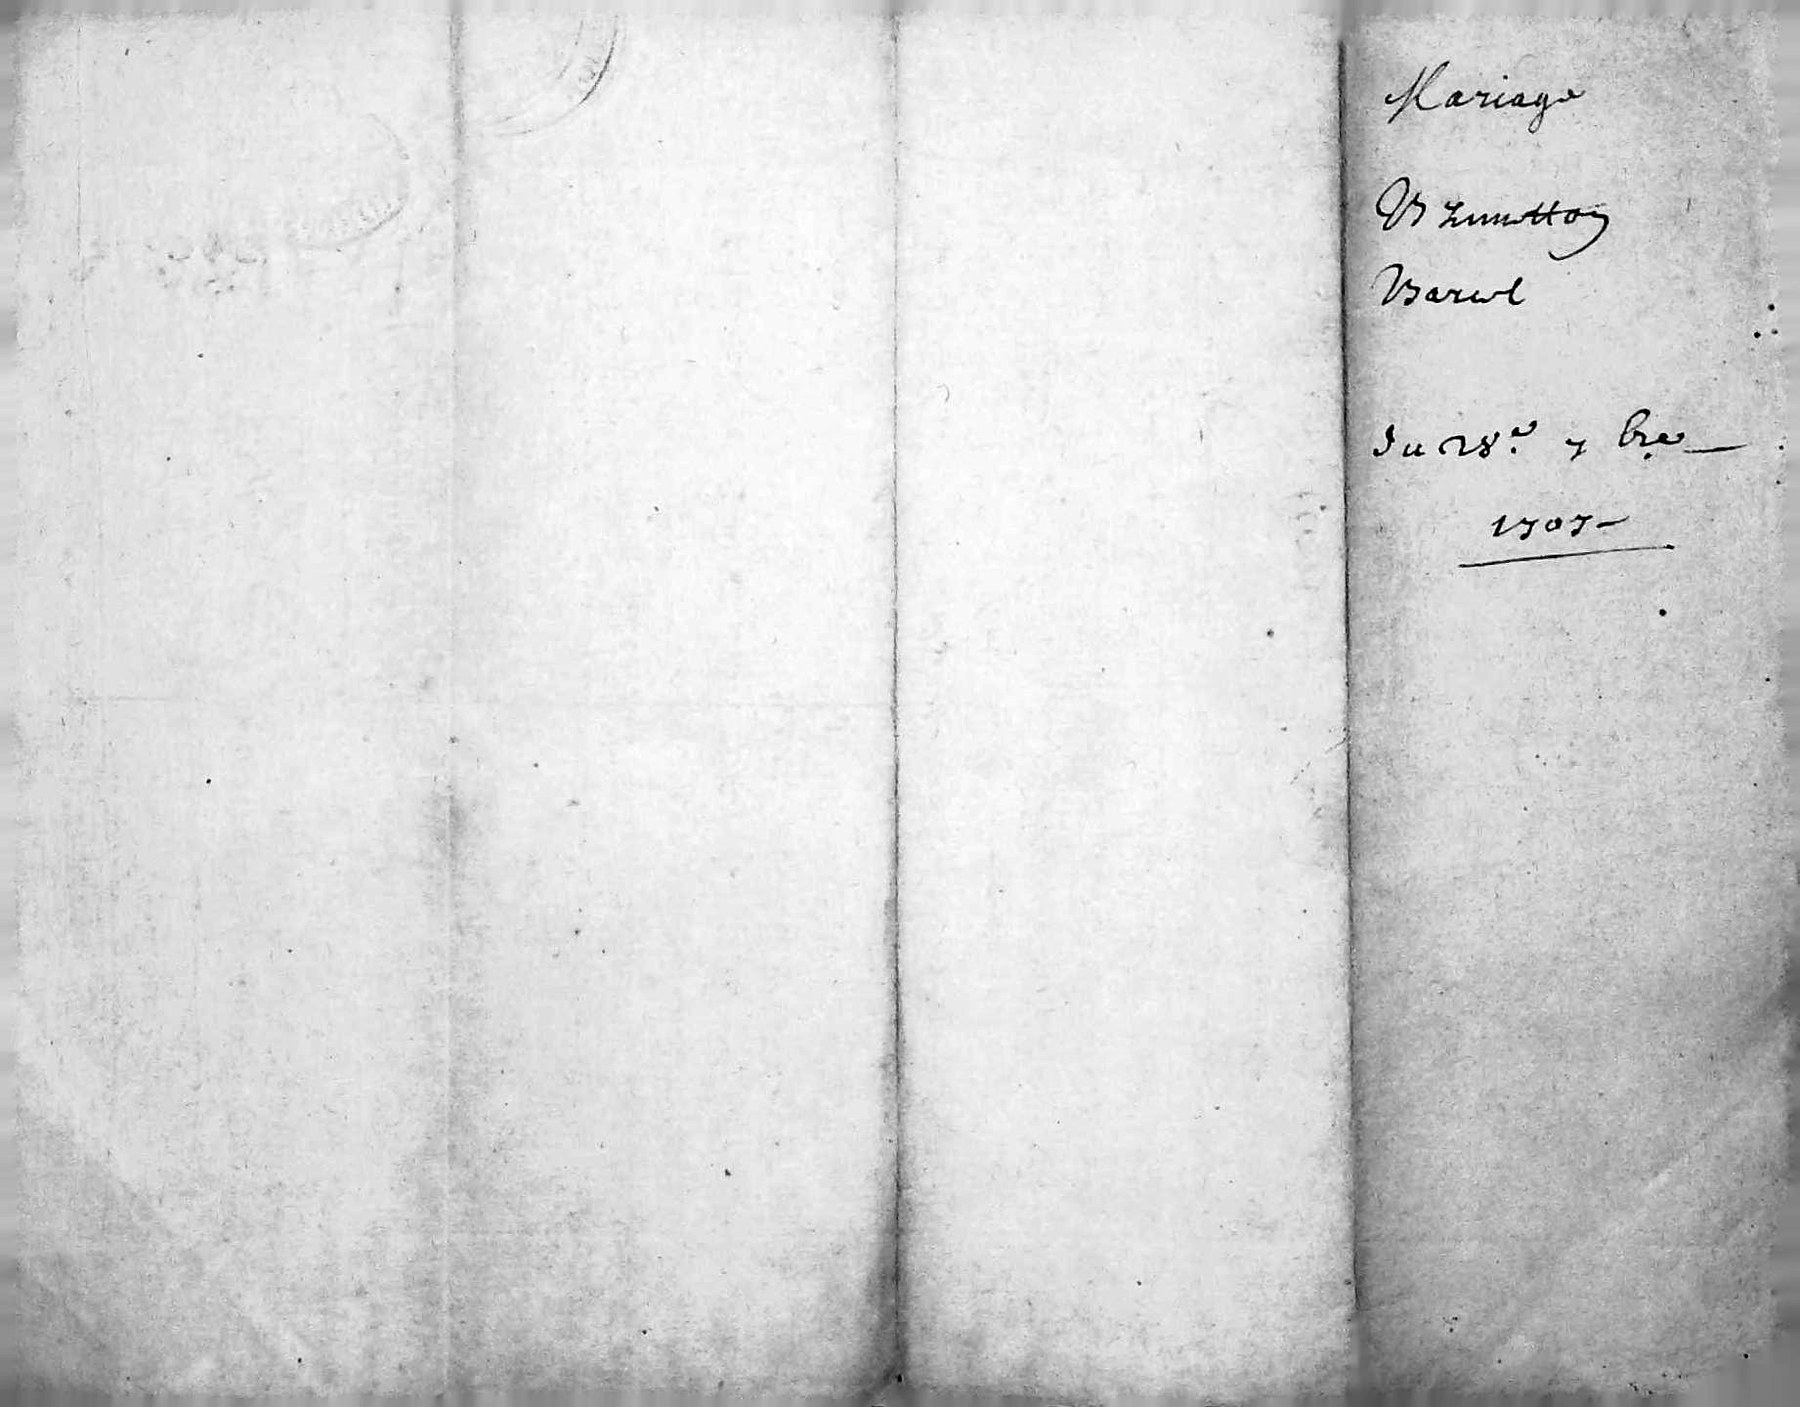 Mariage
Brunetton
Barut
Du 28.e 7 bre
1707